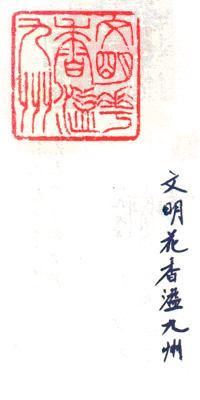 文明花
香溢
九州
文明花香溢九州